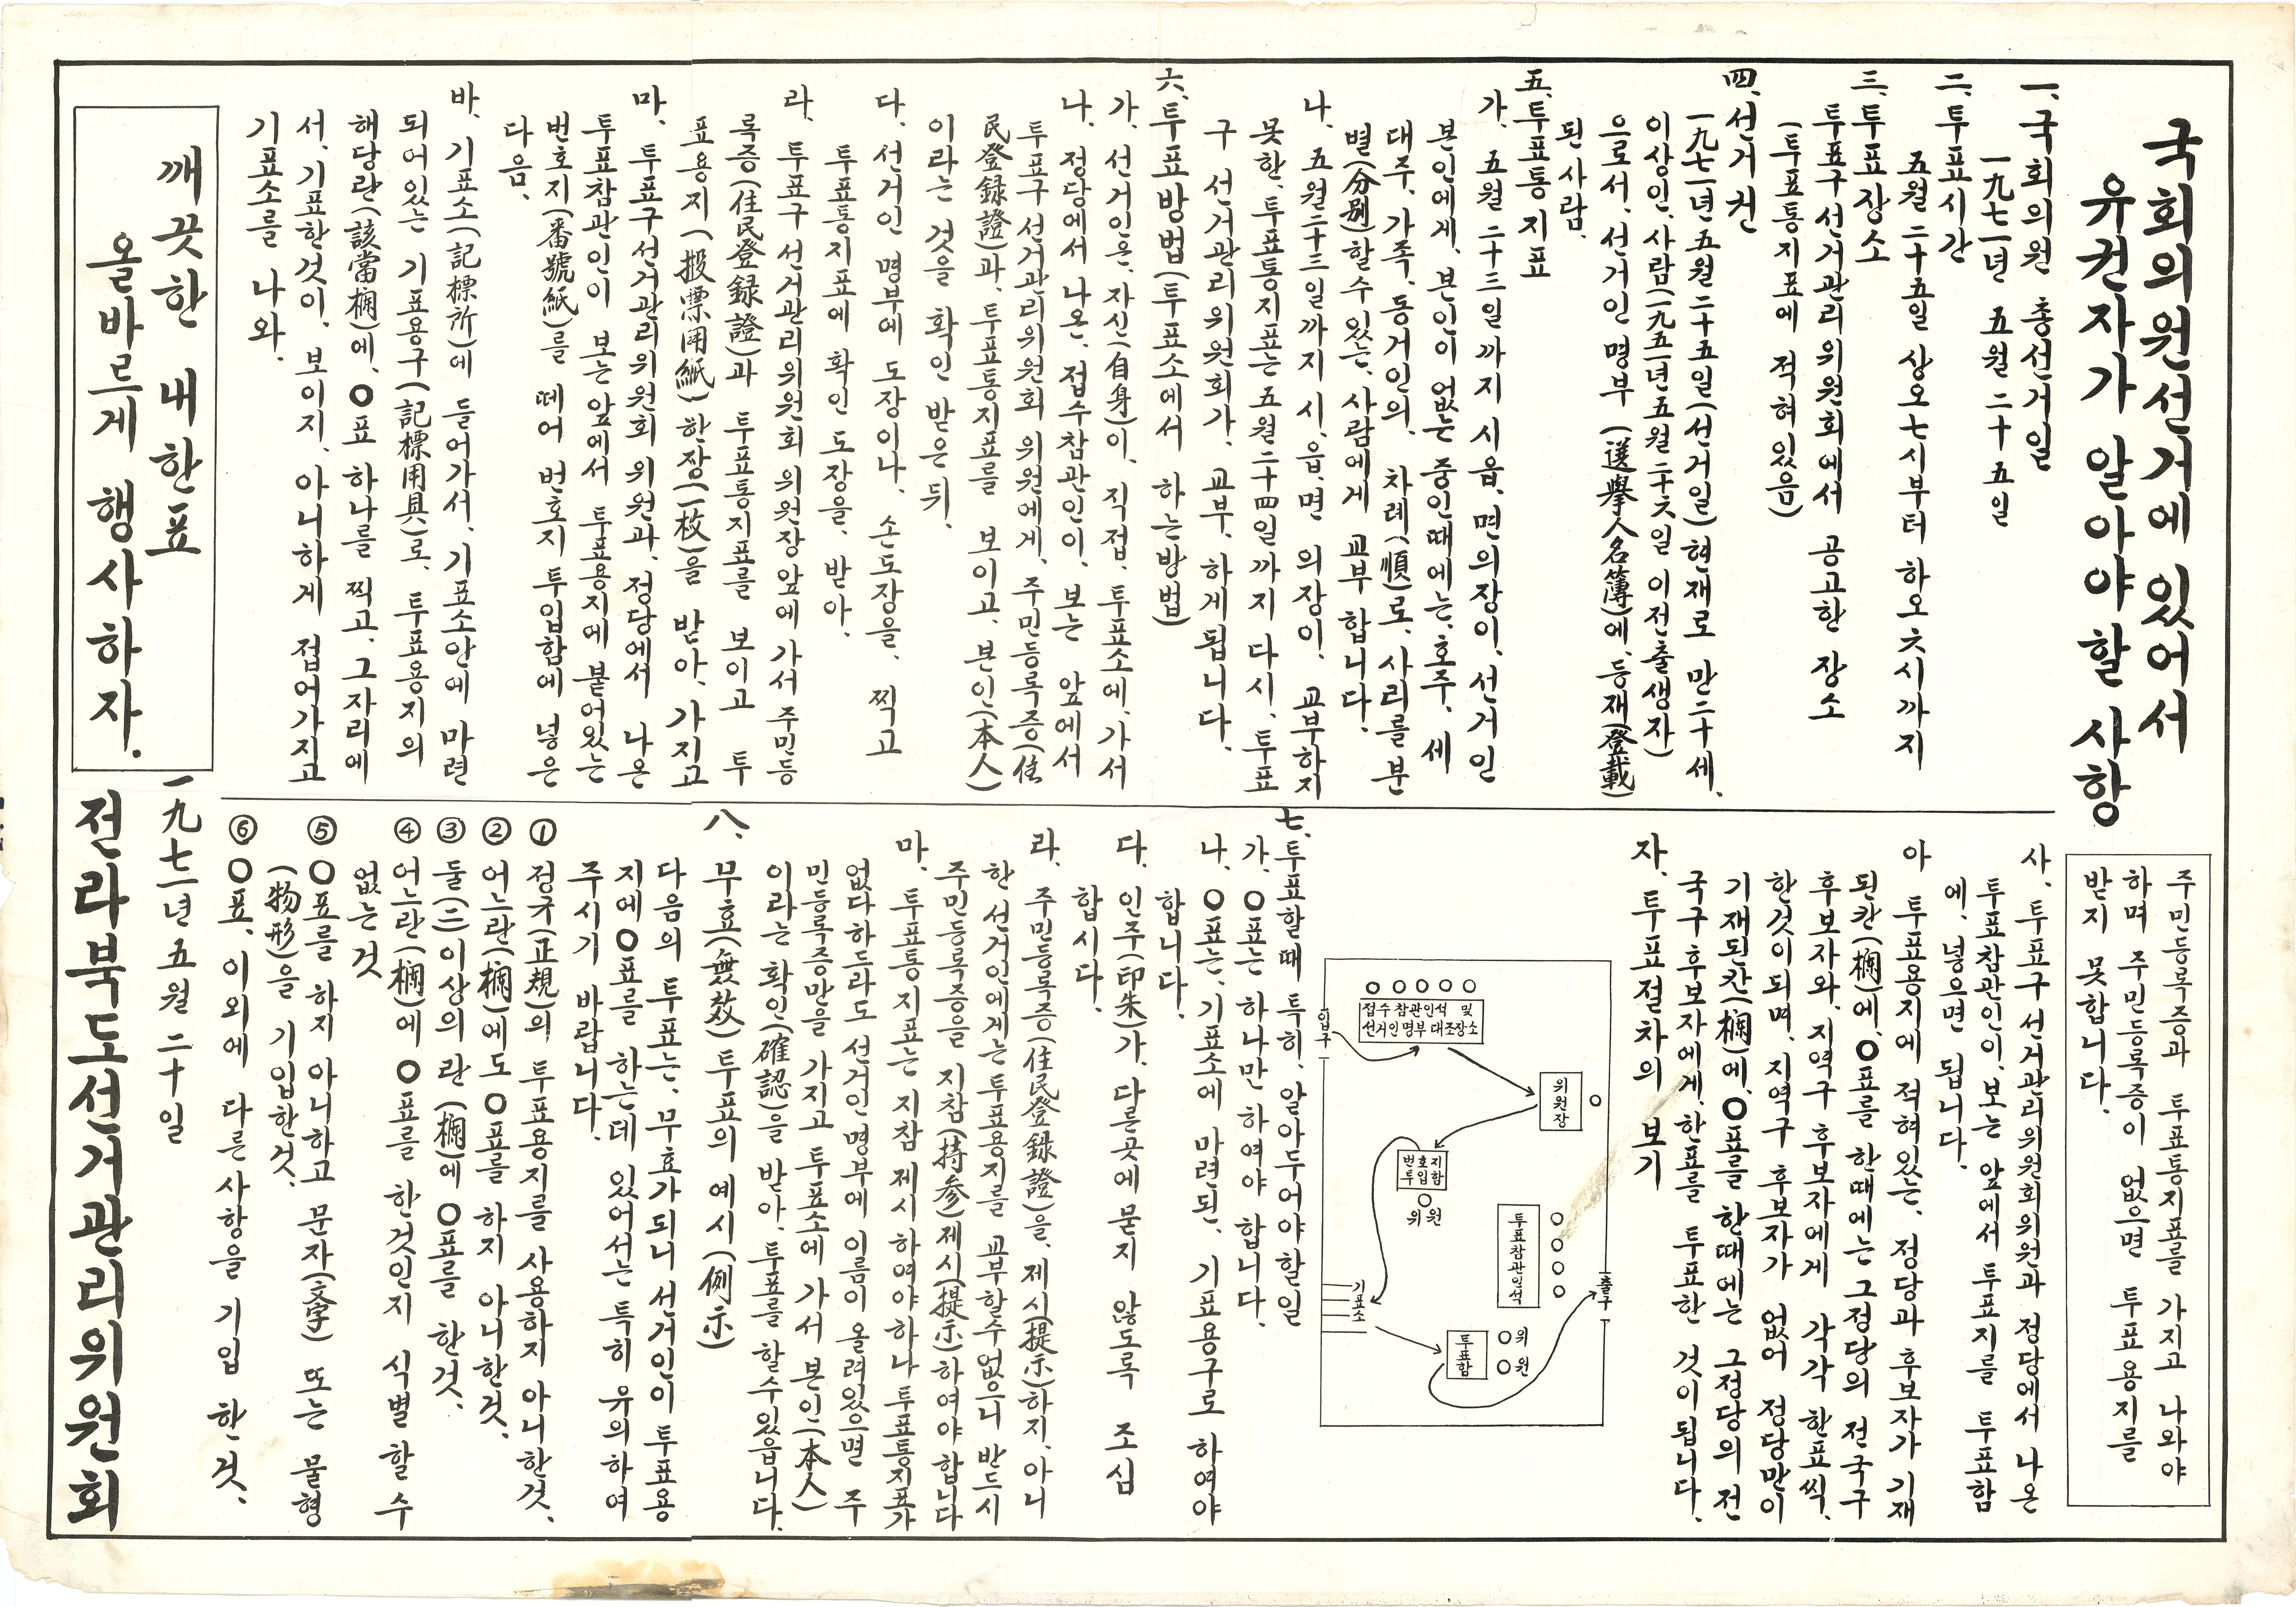 국회의원선거에 있어서
유권자가 알아야할 사항
一. 국회의원 총선거일
一九七一년 五월 二十五일
二. 투표시간
五월 二十五일 상오七시부터 하오六시까지
三. 투표장소
투표구선거관리위원회에서 공고한 장소
(투표통지표에 적혀있음)
四. 선거권
一九七一년五월二十五일(선거일)현재로 만二十세.
이상인.사람(一九五一년五월二十六일 이전출생자)
으로서.선거인명부(選擧人名簿)에.등재(登載)
된 사람.
五. 투표통지표
가. 五월二十三일까지 시.읍.면의장이.선거인
본인에게.본인이 없는 중인때에는.호주.세
대주.가족.동거인의. 차례(順)로.사리를분
별(分別)할수있는.사람에게 교부합니다.
나. 五월二十三일까지 시.읍.면 의장이. 교부하지
못한.투표통지표는五월二十四일까지 다시.투표
구 선거관리위원회가. 교부.하게됩니다.
六. 투표방법(투표소에서 하는방법)
가. 선거인은.자신(自身)이.직접.투표소에.가서
나. 정당에서 나온.접수참관인이.보는 앞에서
투표구선거관리위원회 위원에게.주민등록증(住
民登録證)과.투표통지표를 보이고.본인(本人)
이라는 것을 확인 받은뒤.
다. 선거인 명부에 도장이나. 손도장을. 찍고
투표통지표에 확인 도장을. 받아.
라. 투표구 선거관리위원회 위원장앞에 가서 주민등
록증(住民登録證)과 투표통지표를 보이고 투
표용지(投票用紙)한장(一枚)을 받아.가지고
마. 투표구선거관리위원회 위원과.정당에서 나온
투표참관인이 보는앞에서 투표용지에 붙어있는
번호지(番號紙)를 떼어 번호지 투입함에 넣은
다음.
바. 기표소(記標所)에 들어가서.기표소안에 마련
되어있는 기표용구(記標用具)로. 투표용지의
해당란(該當欄)에.○표 하나를 찍고.그자리에
서.기표한것이.보이지.아니하게 접어가지고
기표소를 나와.
깨끗한 내한표
올바르게 행사하자.
주민등록증과 투표통지표를 가지고 나와야
하며 주민등록증이 없으면 투표용지를
받지 못합니다.
사. 투표구선거관리위원회위원과 정당에서 나온
투표참관인이.보는 앞에서 투표지를 투표함
에.넣으면 됩니다.
아 투표용지에 적혀있는. 정당과 후보자가 기재
된칸(欄)에.○표를 한때에는 그정당의 전국구
후보자와.지역구 후보자에게 각각 한표씩.
한것이되며.지역구 후보자가 없어 정당만이
기재된칸(欄)에.○표를 한때에는 그정당의 전
국구 후보자에게.한표를 투표한 것이됩니다.
자. 투표절차의 보기
입구
접수참관인석 및
선거인명부대조장소
위원장
번호지
투입함
위원
투표참관인석
출구
기표소
투표함
위
원
七. 투표할때 특히.알아두어야할일
가. ○표는 하나만 하여야 합니다.
나. ○표는.기표소에 마련된. 기표용구로 하여야
합니다.
다. 인주(印朱)가.다른곳에 묻지 않도록 조심
합시다.
라. 주민등록증(住民登録證)을.제시(提示)하지.아니
한 선거인에게는 투표용지를 교부할수없으니 반드시
주민등록증을 지참(持参)제시(提示)하여야합니다
마. 투표통지표는 지참 제시하여야하나 투표통지표가
없다하드라도 선거인명부에 이름이 올려있으면 주
민등록증만을 가지고 투표소에 가서 본인(本人)
이라는 확인(確認)을 받아.투표를 할수있읍니다.
八. 무효(無效)투표의 예시(例示)
다음의 투표는.무효가되니 선거인이 투표용
지에○표를 하는데 있어서는 특히 유의하여
주시기 바랍니다.
① 정규(正規)의 투표용지를 사용하지 아니한것.
② 어느란(欄)에도○표를 하지 아니한것.
③ 둘(二)이상의 란(欄)에 ○표를 한것.
④ 어느란(欄)에 ○표를 한것인지 식별할수
없는것
⑤ ○표를 하지 아니하고 문자(文字) 또는 물형
(物形)을 기입한것.
⑥ ○표. 이외에 다른사항을 기입 한것.
一九七一년 五월 二十일
전라북도선거관리위원회